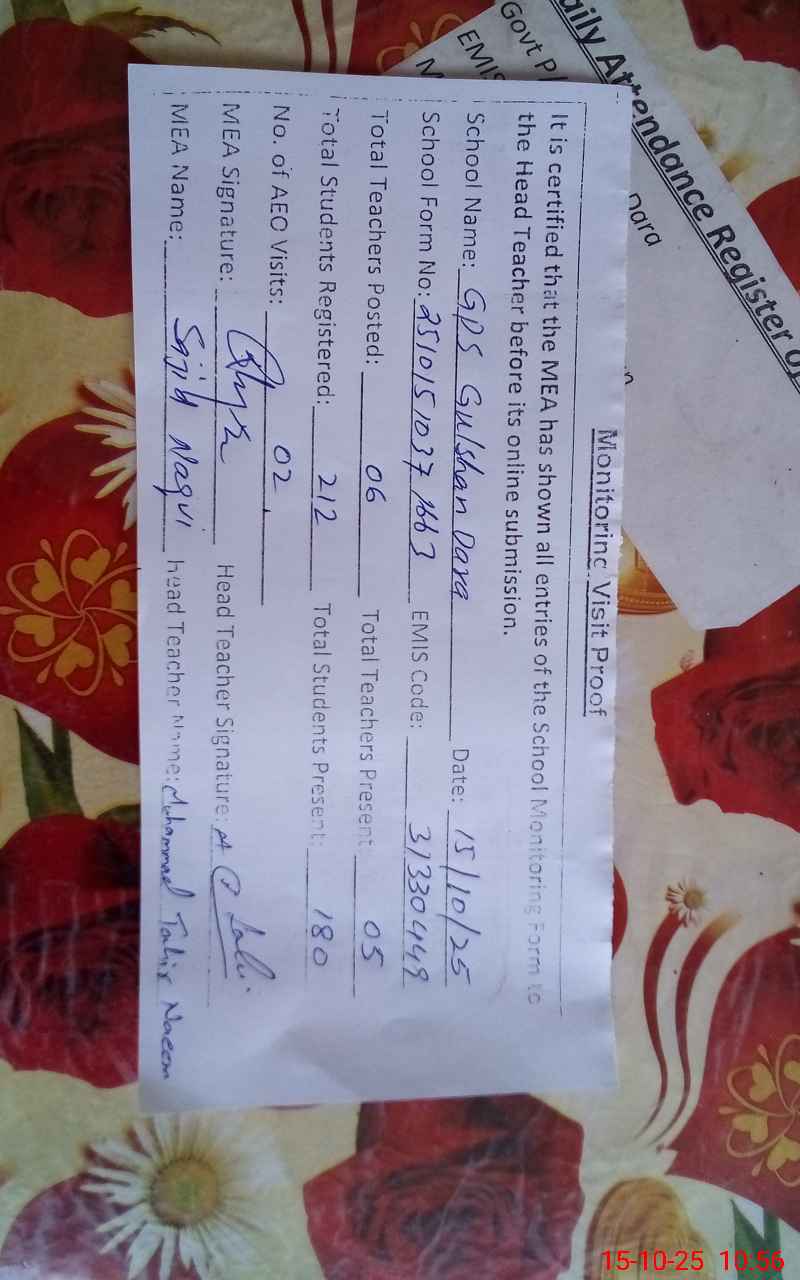 Monitoring Visit Proof
It is certified that the MEA has shown all entries of the School Monitoring Form to
the Head Teacher before its online submission.
School Name: GPS Gulshan Dara Date: 15/10/25
School Form No: 25101510371663 EMIS Code: 31330449
Total Teachers Posted: 06 Total Teachers Present: 05
Total Students Registered: 212 Total Students Present: 180
No. of AEO Visits: 02
MEA Signature: Head Teacher Signature:
MEA Name: Sajid Naqvi Head Teacher Name: Muhammad Tahir Naeem
aily Attendance Register of
Govt P
EMIS
M
Dara
15-10-25 10:56